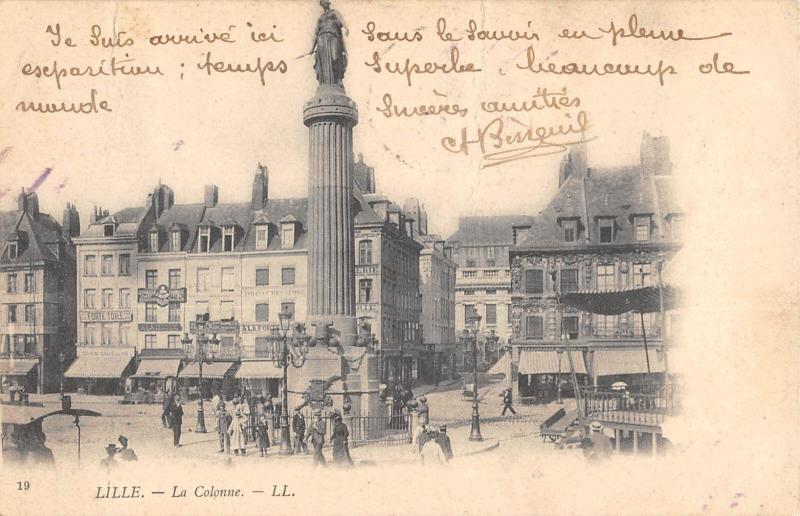 Je suis arrivé ici sans le savoir en pleine
exsparition ; temps superbe, beaucoup de
monde sincères amitiés
FORTE TOILE
19 LILLE. — La Colonne. — LL.